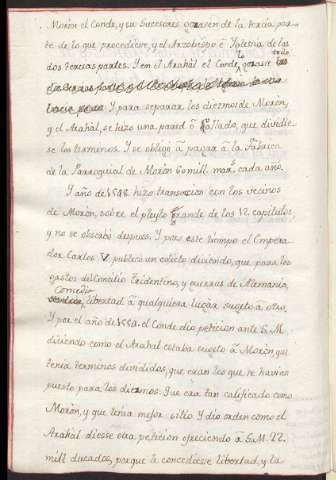 Moron el Conde, y su Sucesores gozasen de la tercia par-
te de lo que procediese, y el Arzobispo è Yglesia de las
dos tercias partes. Y en el Arahal el Conde, lo gozase todo
Y para separar los diezmos de Moron,
y el Arahal, se hizo una pared ò Vallado, que dividie-
se los terminos. Y se obligò à pagar à la Fabrica
de la Parroquial de Moron 60 mill mar.s cada año.
Y año de 1548 hizo transaccion con los vecinos
de Moron, sobre el pleyto grande de los 12 capitulos
y no se observò despues. Y para este tiempo el Empera-
dor Carlos V publicò un edicto diciendo, que para los
gastos del Concilio Tridentino, y guerras de Alemania,
Concedio libertad à qualquiera lugar sugeto à otro.
Y por el año de 1552. el Conde dio peticion ante S.M.
diciendo como el Arahal estaba sugeto à Moron, que
tenia terminos divididos, que eran los que se havian
puesto para los diezmos: Que era tan calificado como
Moron, y que tenia mejor sitio. Y dio orden como el
Arahal diesse otra peticion ofreciendo à S.M. 22
mill ducados, porque le concediesse libertad, y la